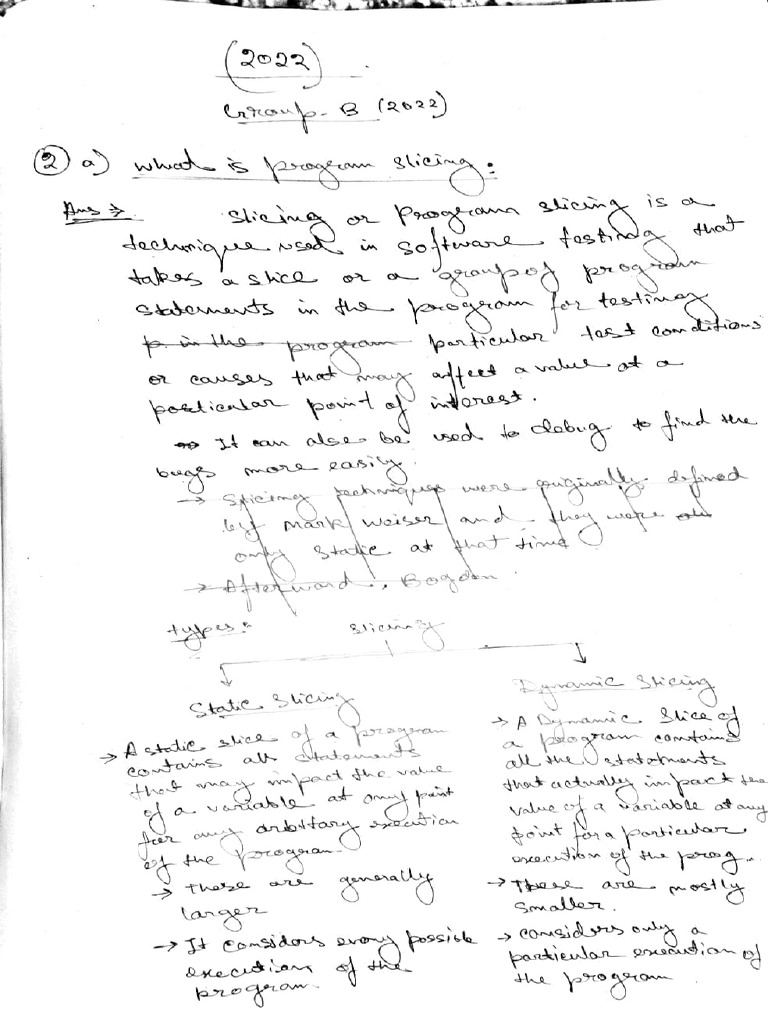 (2022)
Group-B (2022)
② a) What is program slicing:
Ans ⇒ Slicing or Program slicing is a
technique used in software testing that
takes a slice or a group of program
statements in the program for testing
p. in the program particular test conditions
or causes that may affect a value at a
particular point of interest.
⇒ It can also be used to debug to find the
bugs more easily.
→ Slicing techniques were originally defined
by Mark Weiser and they were
only static at that time
→ Afterward, Bogdan
types: slicing
Static Slicing
→ A static slice of a program
contains all statements
that may impact the value
of a variable at any point
for any arbitrary execution
of the program.
→ These are generally
larger
→ It considers every possible
execution of the
program.
Dynamic Slicing
→ A Dynamic Slice of
a program contains
all the statements
that actually impact the
value of a variable at any
point for a particular
execution of the prog.
→ These are mostly
smaller.
→ considers only a
particular execution of
the program